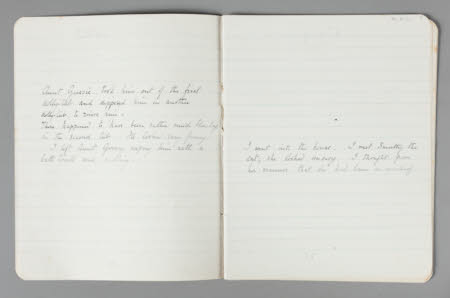 Aunt took him out of the first
and dropped him in another
to rinse him.
There happened to have been rather much
in the second tub. He looked very funny.
I left Aunt wiping him with a
bath towel and
I went into the house. I met Smutty the
cat; she looked uneasy. I thought from
her manner that she had been in mischief